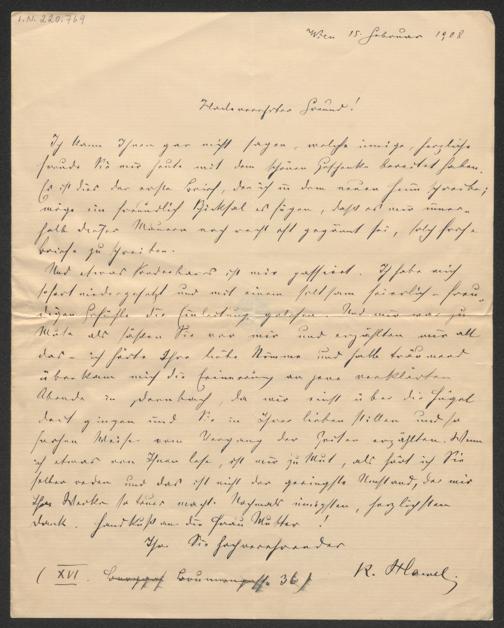 I.N. 220.769
Wien 15. Februar 1908
Hochverehrter Freund!
Ich kann Ihnen gar nicht sagen, welche innige, herzliche
Freude Sie mir heute mit dem schönen Geschenke bereitet haben.
Es ist dies der erste Brief, den ich in dem neuen Heim schreibe;
möge ein freundlich Schicksal es fügen, daß es mir inner-
halb dieser Mauern noch recht oft gegönnt sei, solch frohe
Briefe zu schreiben.
Und etwas Sonderbares ist mir passiert. Ich habe mich
sofort niedergesetzt und mit einem seltsam feierlich-freu-
digen Gefühle die Einleitung gelesen. Und mir war zu
Mute als säßen Sie vor mir und erzählten mir all
das – ich hörte Ihre liebe Stimme und halb träumend
überkam mich die Erinnerung an jene verklärten
Abende in Dornbach, da wir einst über die Hügel
dort gingen und Sie in Ihrer lieben stillen und so
Weise vom Vergang der Zeiten erzählten. Wenn
ich etwas von Ihnen lese, ist mir zu Mut, als hört ich Sie
selber reden und das ist nicht der geringste Umstand, der mir
Ihre Werke so teuer macht. Nochmals innigsten, herzlichsten
Dank. Handkuß an die Frau Mutter!
Ihr Sie hochverehrender
(XVI. Brunnengasse 36) R. Hawel.